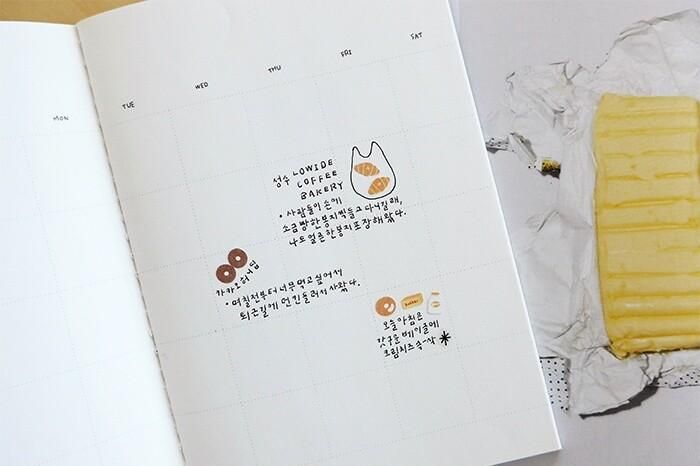 MON
TUE
WED
THU
FRI
SAT
성수 LOWIDE
COFFEE
BAKERY
• 사람들이 손에
소금빵 한봉지씩 들고 다니길래,
나도 얼른 한봉지 포장해왔다.
카카오허니딥
• 며칠전부터 너무 먹고싶어서
퇴근길에 던킨 들러서 사왔다.
butter
오늘 아침은
갓구운 베이글에
크림치즈 속-삭